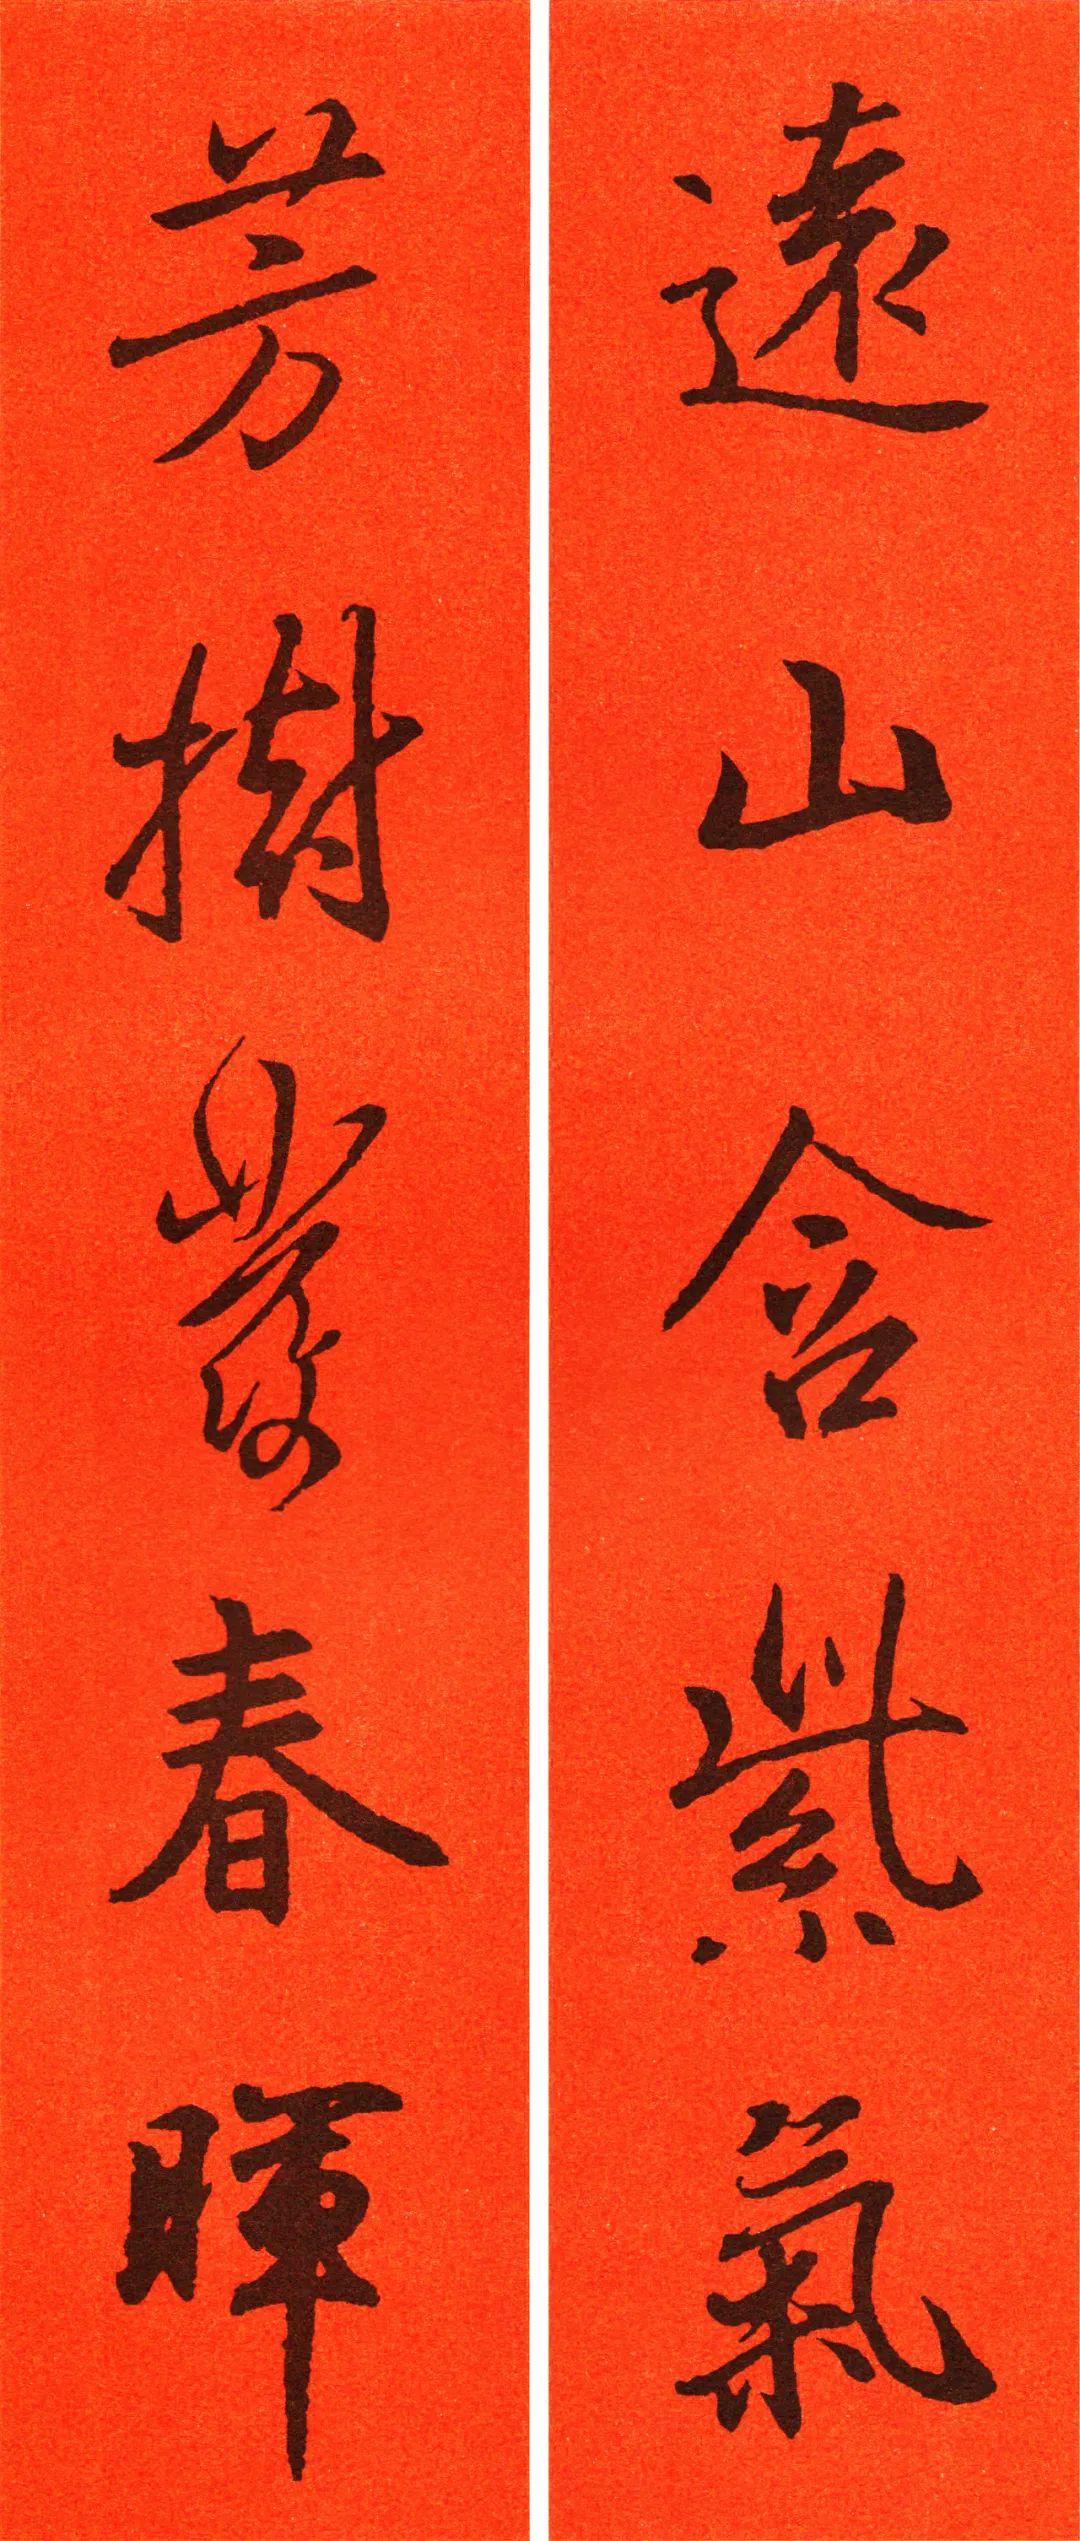 遠山含紫氣
芳樹發春暉